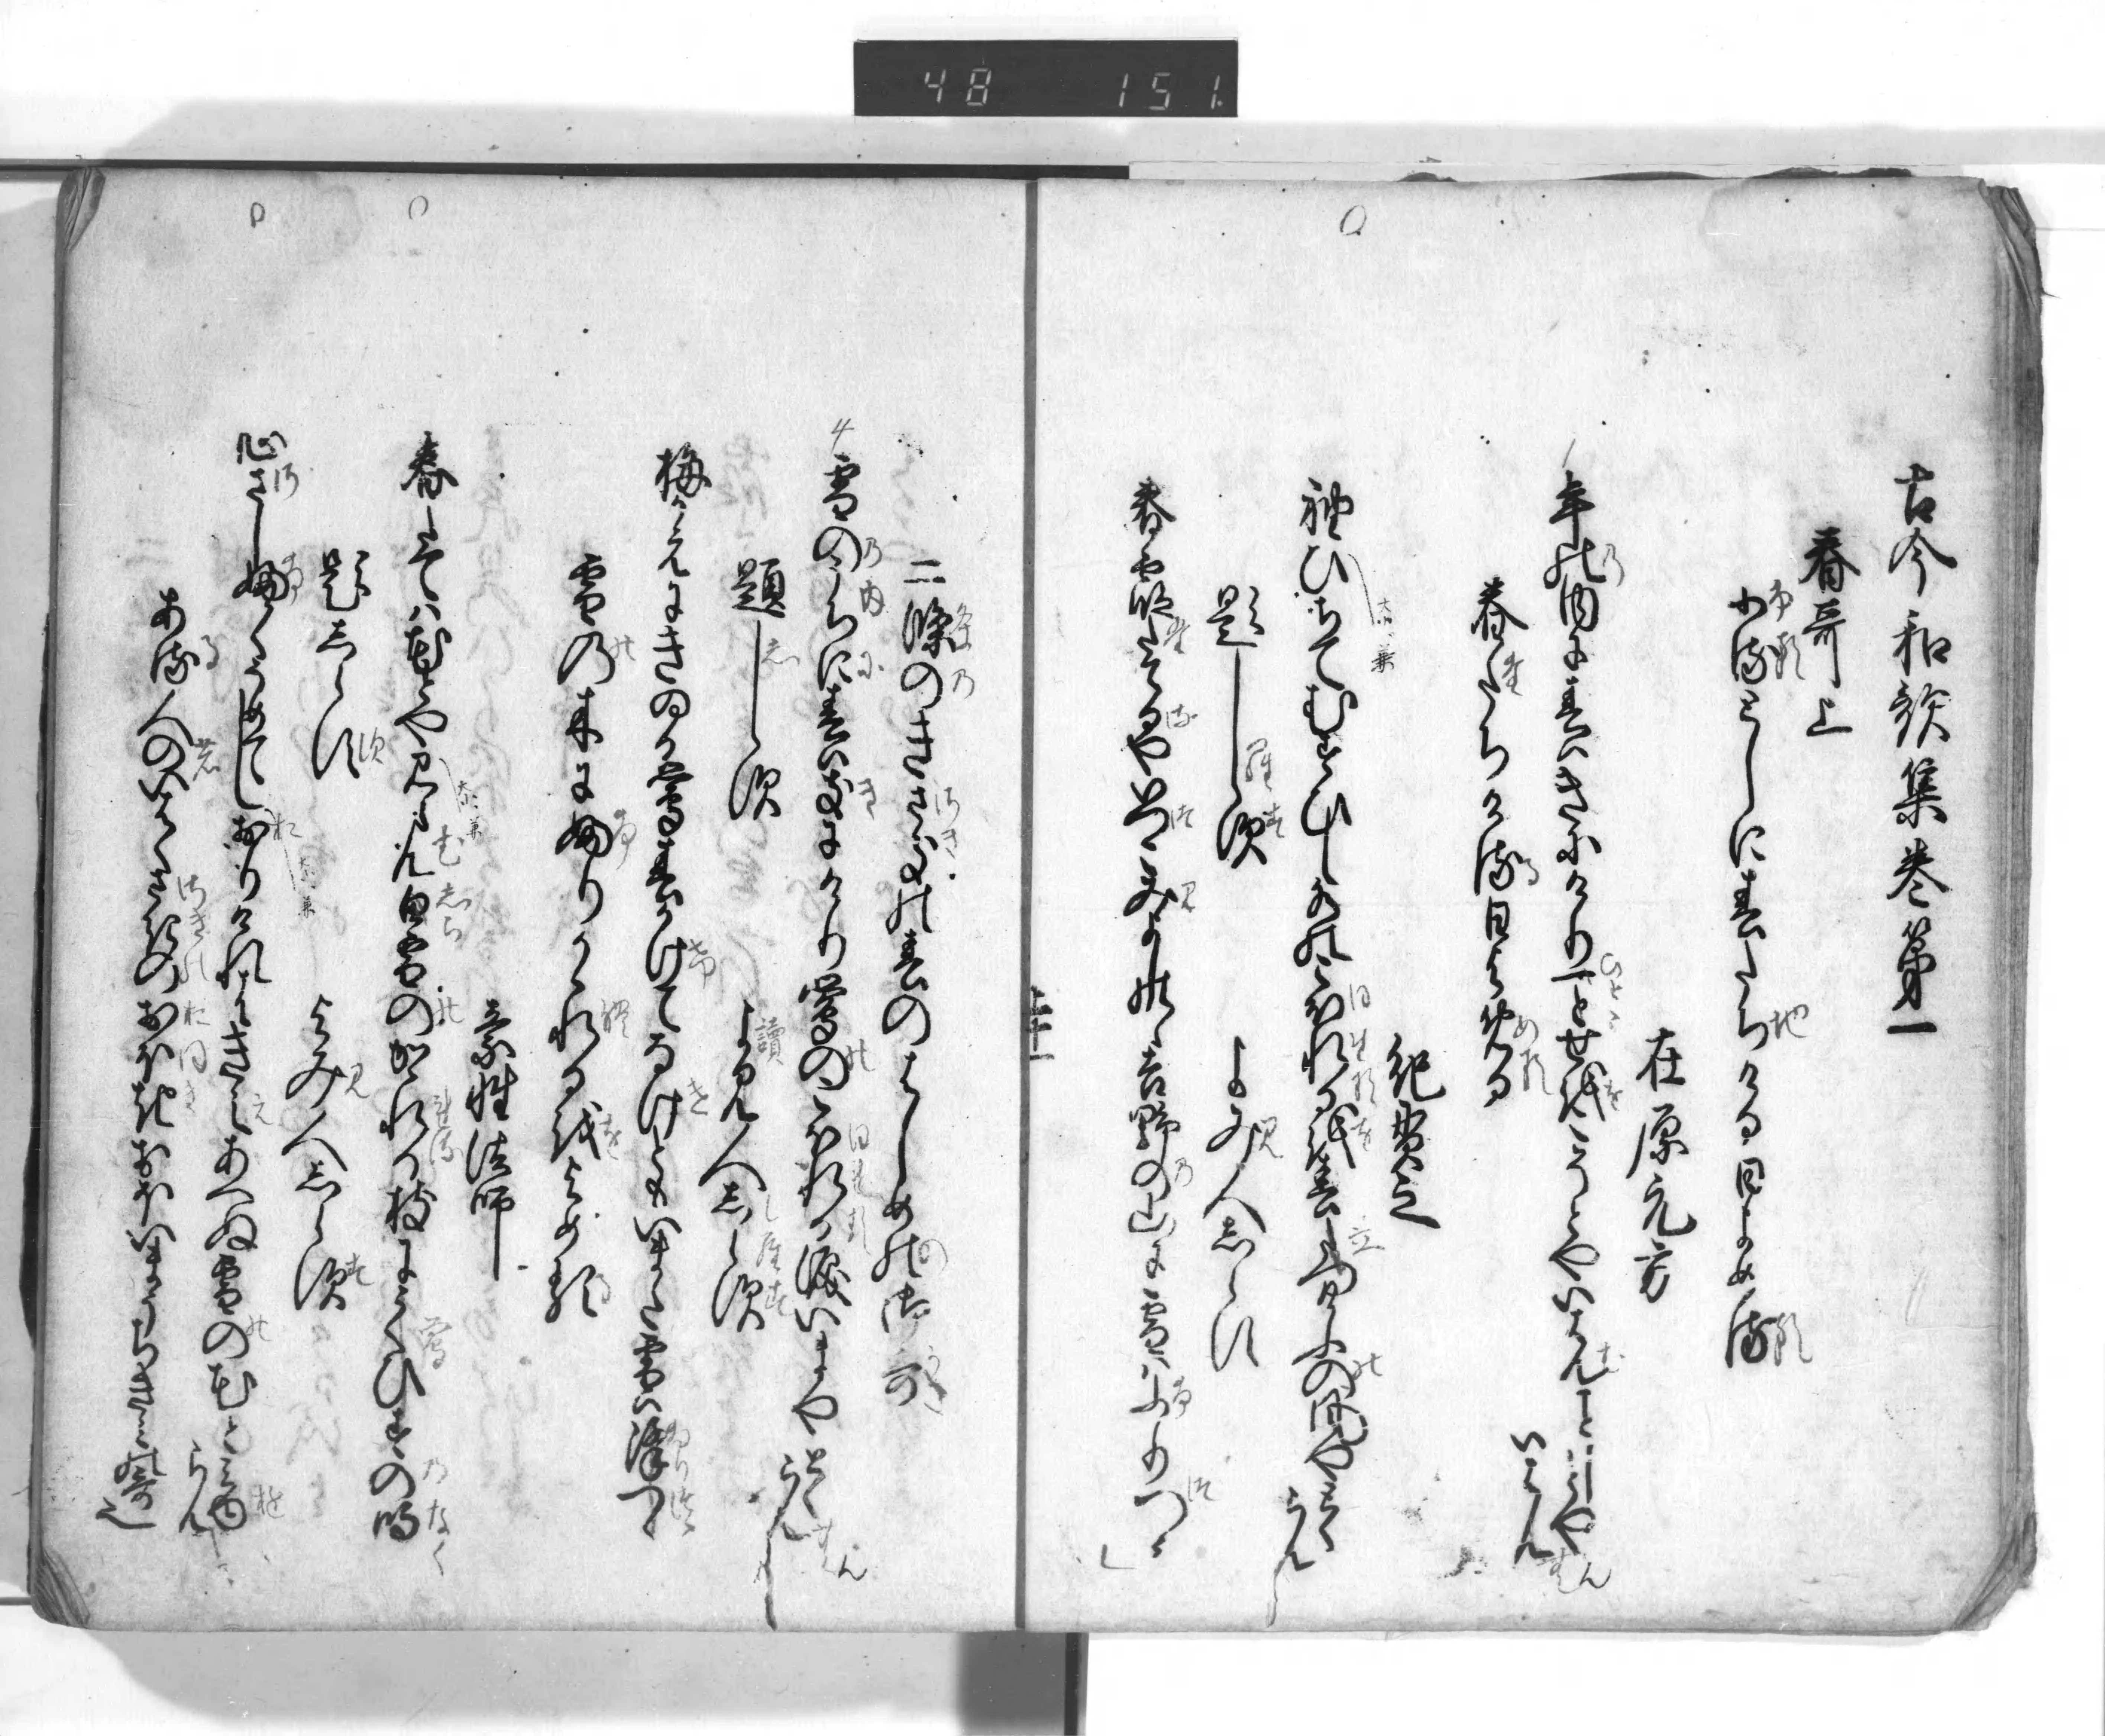 48 151
古今和歌集巻第一
春哥上
ふるとしに春たちける日よめる
在原元方
年の内に春はきにけり一とせをこそとやいはんことしとや
いはん
春たちける日よめる
紀貫之
袖ひちてむすひし水のこほれるを春立けふの風やとく
らん
題しらす
よみ人しらす
春霞たてるやいつこみよしのゝ吉野の山に雪はふりつゝ
二條のきさきの春のはしめの御哥
雪のうちに春はきにけり鶯のこほれる涙いまやとく
らん
題しらす
よみ人しらす
梅かえにきゐる鶯春かけてなけともいまた雪はふりつゝ
雪の木にふりかゝれるをよめる
素性法師
春たては花とや見らん白雪のかゝれる枝にうくひすの鳴
題しらす
よみ人しらす
心さしふかくそめてしおりけれはきえあへぬ雪の花と見ゆ
らん
ある人のいはくさきのおほきおほいまうちきみの哥
也